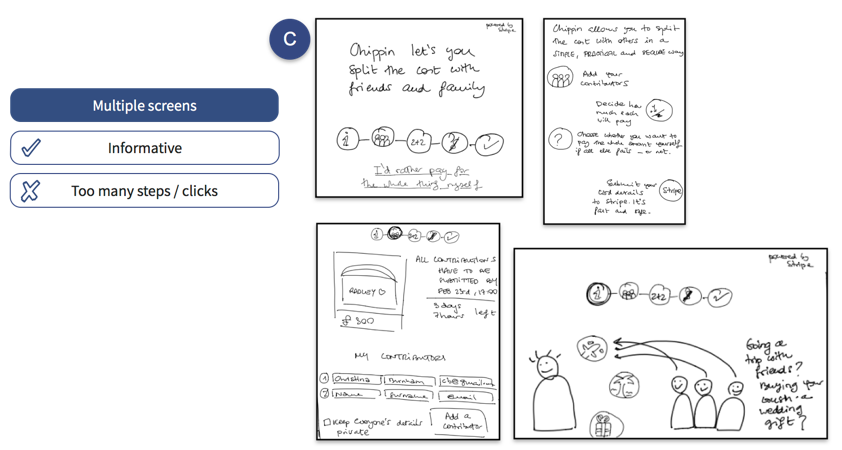 Multiple screens
Informative
Too many steps / clicks
C
powered by
Stripe
Chippin let's you
split the cost with
friends and family
i
2+2
I'd rather pay for
the whole thing myself
Chippin allows you to split
the cost with others in a
SIMPLE, PRACTICAL and SECURE way
Add your
contributors
Decide how
much each
will pay
?
Choose whether you want to
pay the whole amount yourself
if all else fails – or not.
Submit your
card details
to Stripe. It's
fast and safe.
Stripe
i
2+2
RADLEY
£ 300
ALL CONTRIBUTIONS
HAVE TO BE
SUBMITTED BY
FEB 23rd, 17:00
3 days
7 hours left
MY CONTRIBUTORS
1 Christina Burnham
2 Name Surname email
Keep everyone's details
private
Add a
contributor
powered by
Stripe
i
2+2
Going on a
trip with
friends?
Buying your
a
wedding
gift?